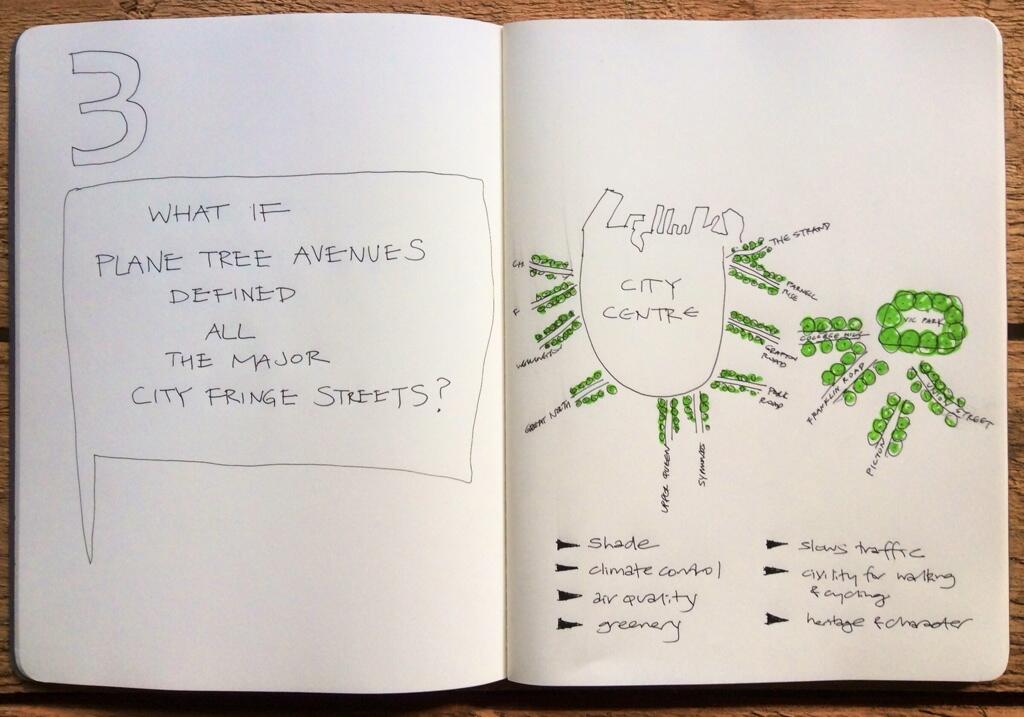 3
WHAT IF
PLANE TREE AVENUES
DEFINED
ALL
THE MAJOR
CITY FRINGE STREETS?
THE STRAND
PARNELL
RISE
CITY
CENTRE
CH
F
WELLINGTON
GRAFTON
ROAD
GREAT NORTH
PARK
ROAD
UPPER QUEEN
SYMONDS
VIC PARK
COLLEGE HILL
FRANKLIN ROAD
STREET
PICTON
shade
climate control
air quality
greenery
slows traffic
civility for walking
& cycling
heritage & character